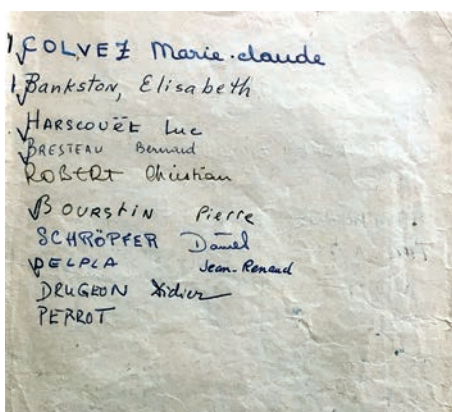 COLVEZ Marie-claude
Bankston, Elisabeth
HARSCOUËT Luc
BRESTEAU Bernard
ROBERT Christian
BOURSTIN Pierre
SCHRÖPFER Daniel
DELPLA Jean-Renaud
DRUGEON Didier
PERROT